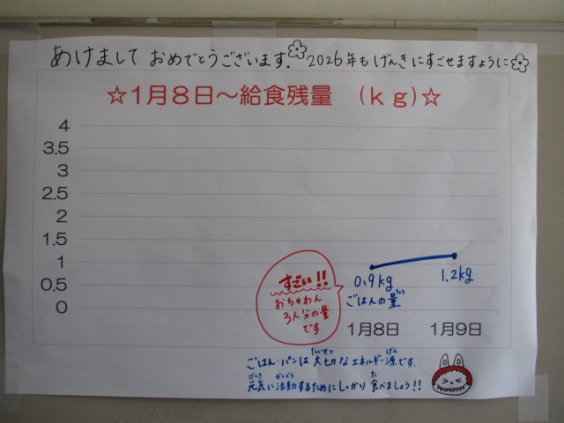 あけまして おめでとうございます。2026年も げんきにすごせますように
☆1月8日～給食残量 (kg)☆
4
3.5
3
2.5
2
1.5
1
0.5
0
すごい!!
おちゃわん
3人分の量
です
0.9kg
ごはんの量
1.2kg
1月8日 1月9日
ごはん・パンは大切なエネルギー源です。
元気に活動するためにしっかり食べましょう!!